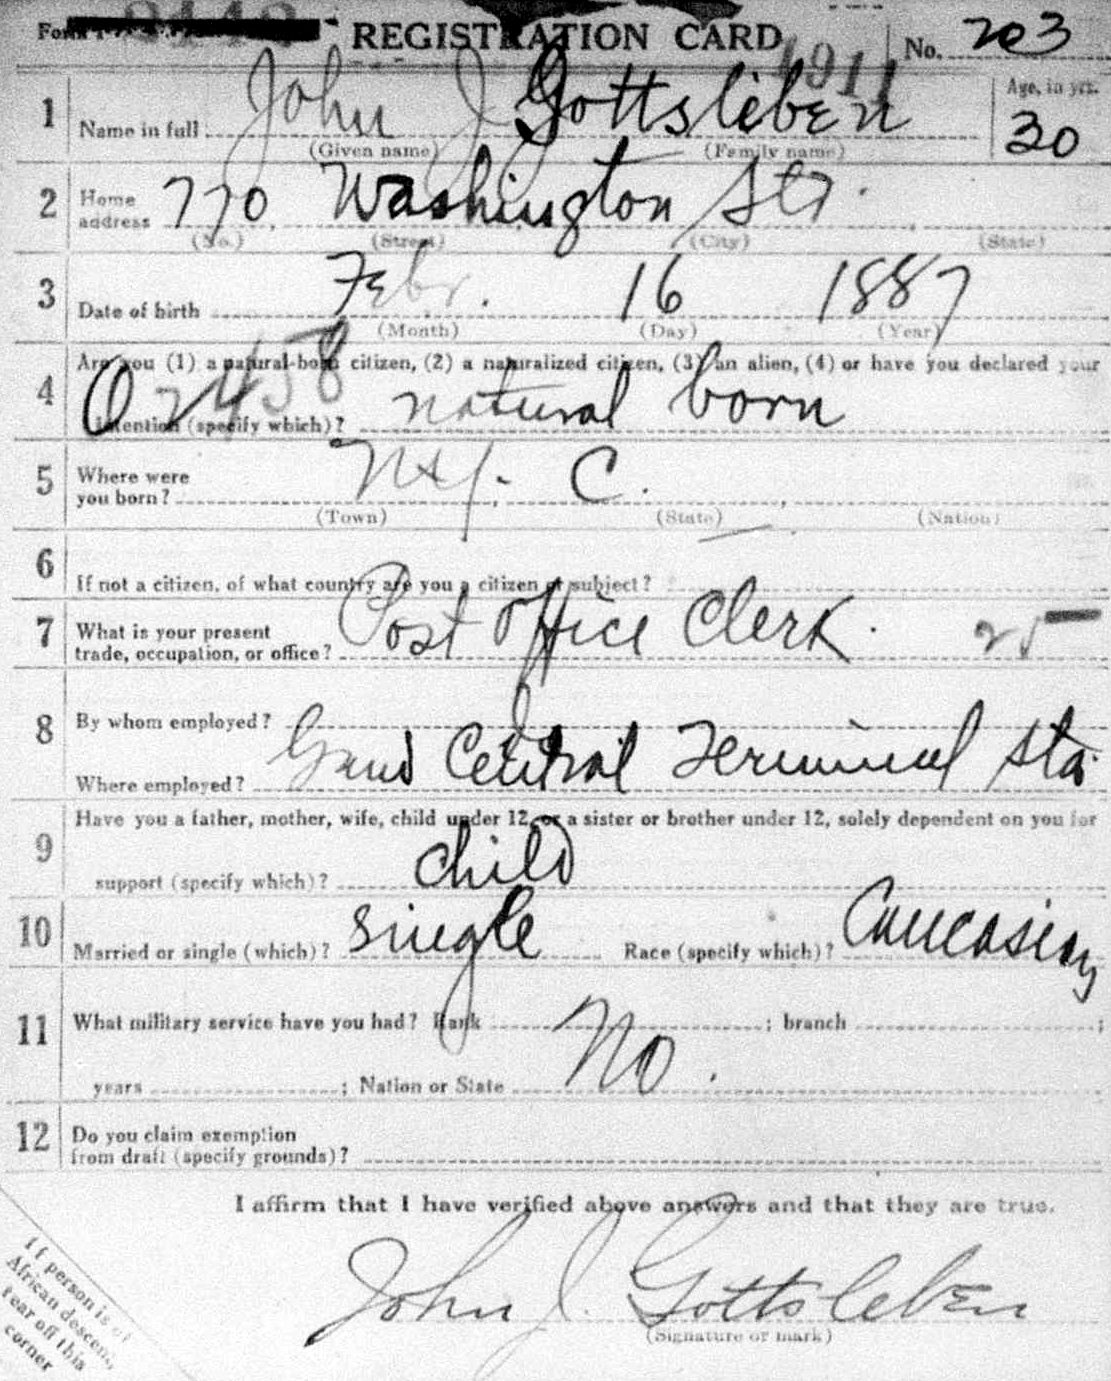 Form 1 REGISTRATION CARD No. 203
1911
1 Name in full John J Gottsleben Age, in yrs. 30
(Given name) (Family name)
2 Home address 770 Washington St.
(No.) (Street) (City) (State)
3 Date of birth Febr. 16 1887
(Month) (Day) (Year)
4 Are you (1) a natural-born citizen, (2) a naturalized citizen, (3) an alien, (4) or have you declared your
intention (specify which)? natural born
5 Where were you born? N.Y. C.
(Town) (State) (Nation)
6 If not a citizen, of what country are you a citizen or subject?
7 What is your present trade, occupation, or office? Post Office Clerk. 25
8 By whom employed?
Where employed? Grand Central Terminal Sta.
9 Have you a father, mother, wife, child under 12, or a sister or brother under 12, solely dependent on you for
support (specify which)? child
10 Married or single (which)? single Race (specify which)? Caucasian
11 What military service have you had? Rank ; branch ;
years ; Nation or State No.
12 Do you claim exemption from draft (specify grounds)?
I affirm that I have verified above answers and that they are true.
John J. Gottsleben
(Signature or mark)
If person is of
African descent,
tear off this
corner